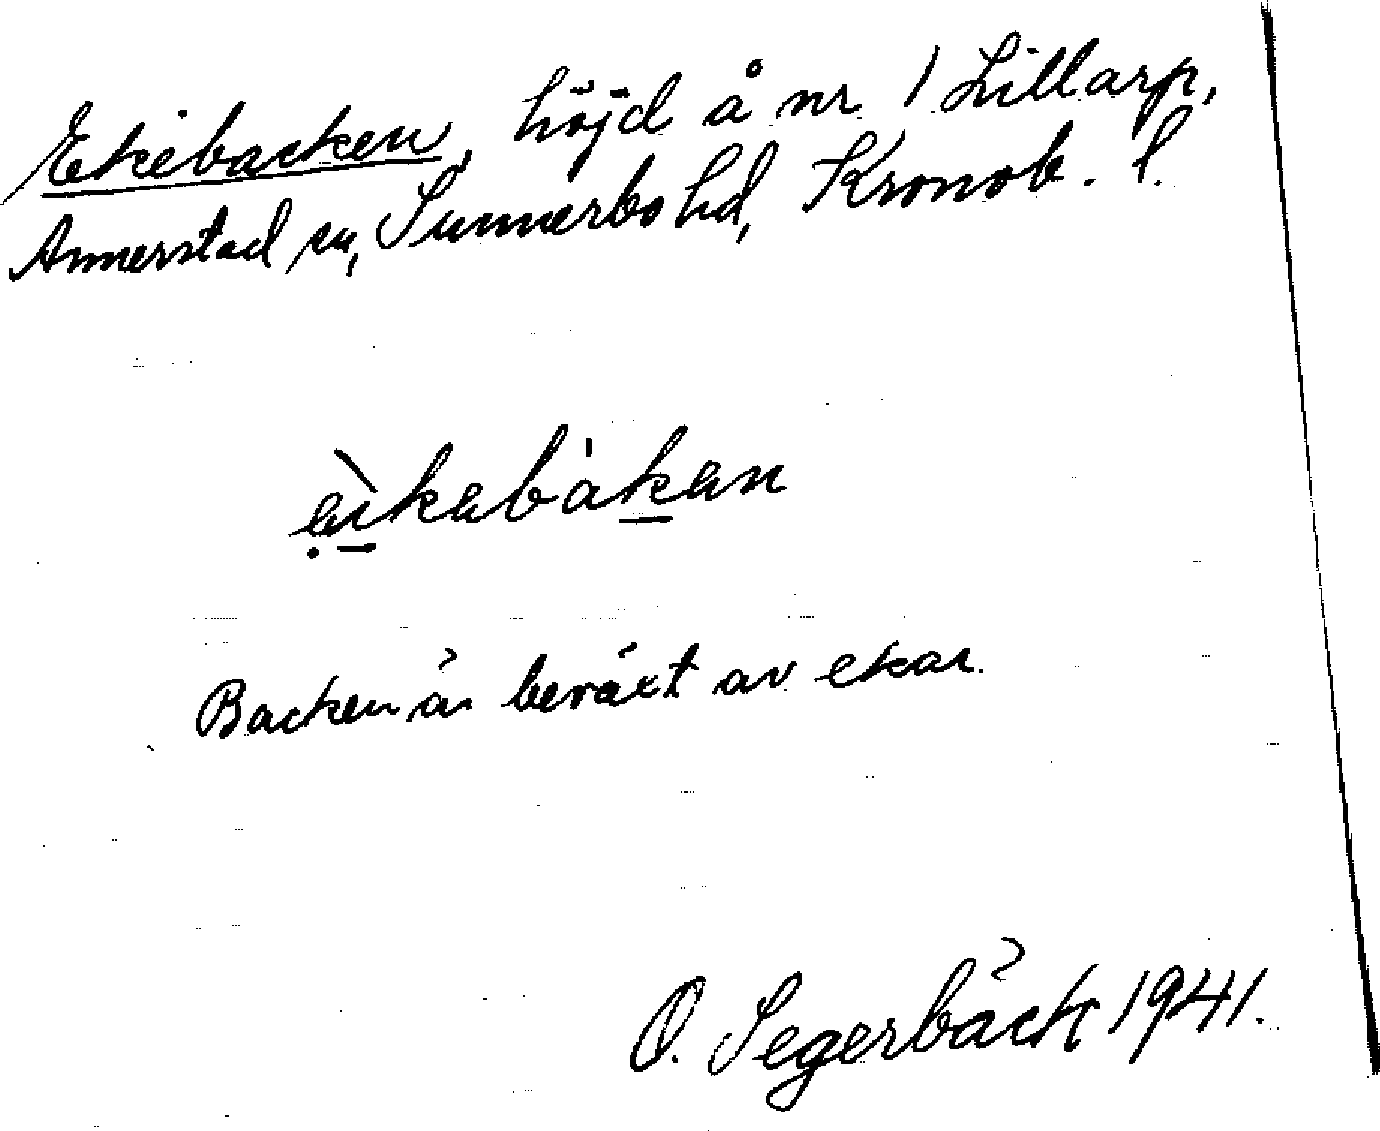 Ekebacken, höjd å nr 1 Lillarp,
Annerstad sn, Sunnerbo hd, Kronob. l.
ạ̈̀ikabàkan
Backen är beväxt av ekar.
O. Segerbäck 1941.